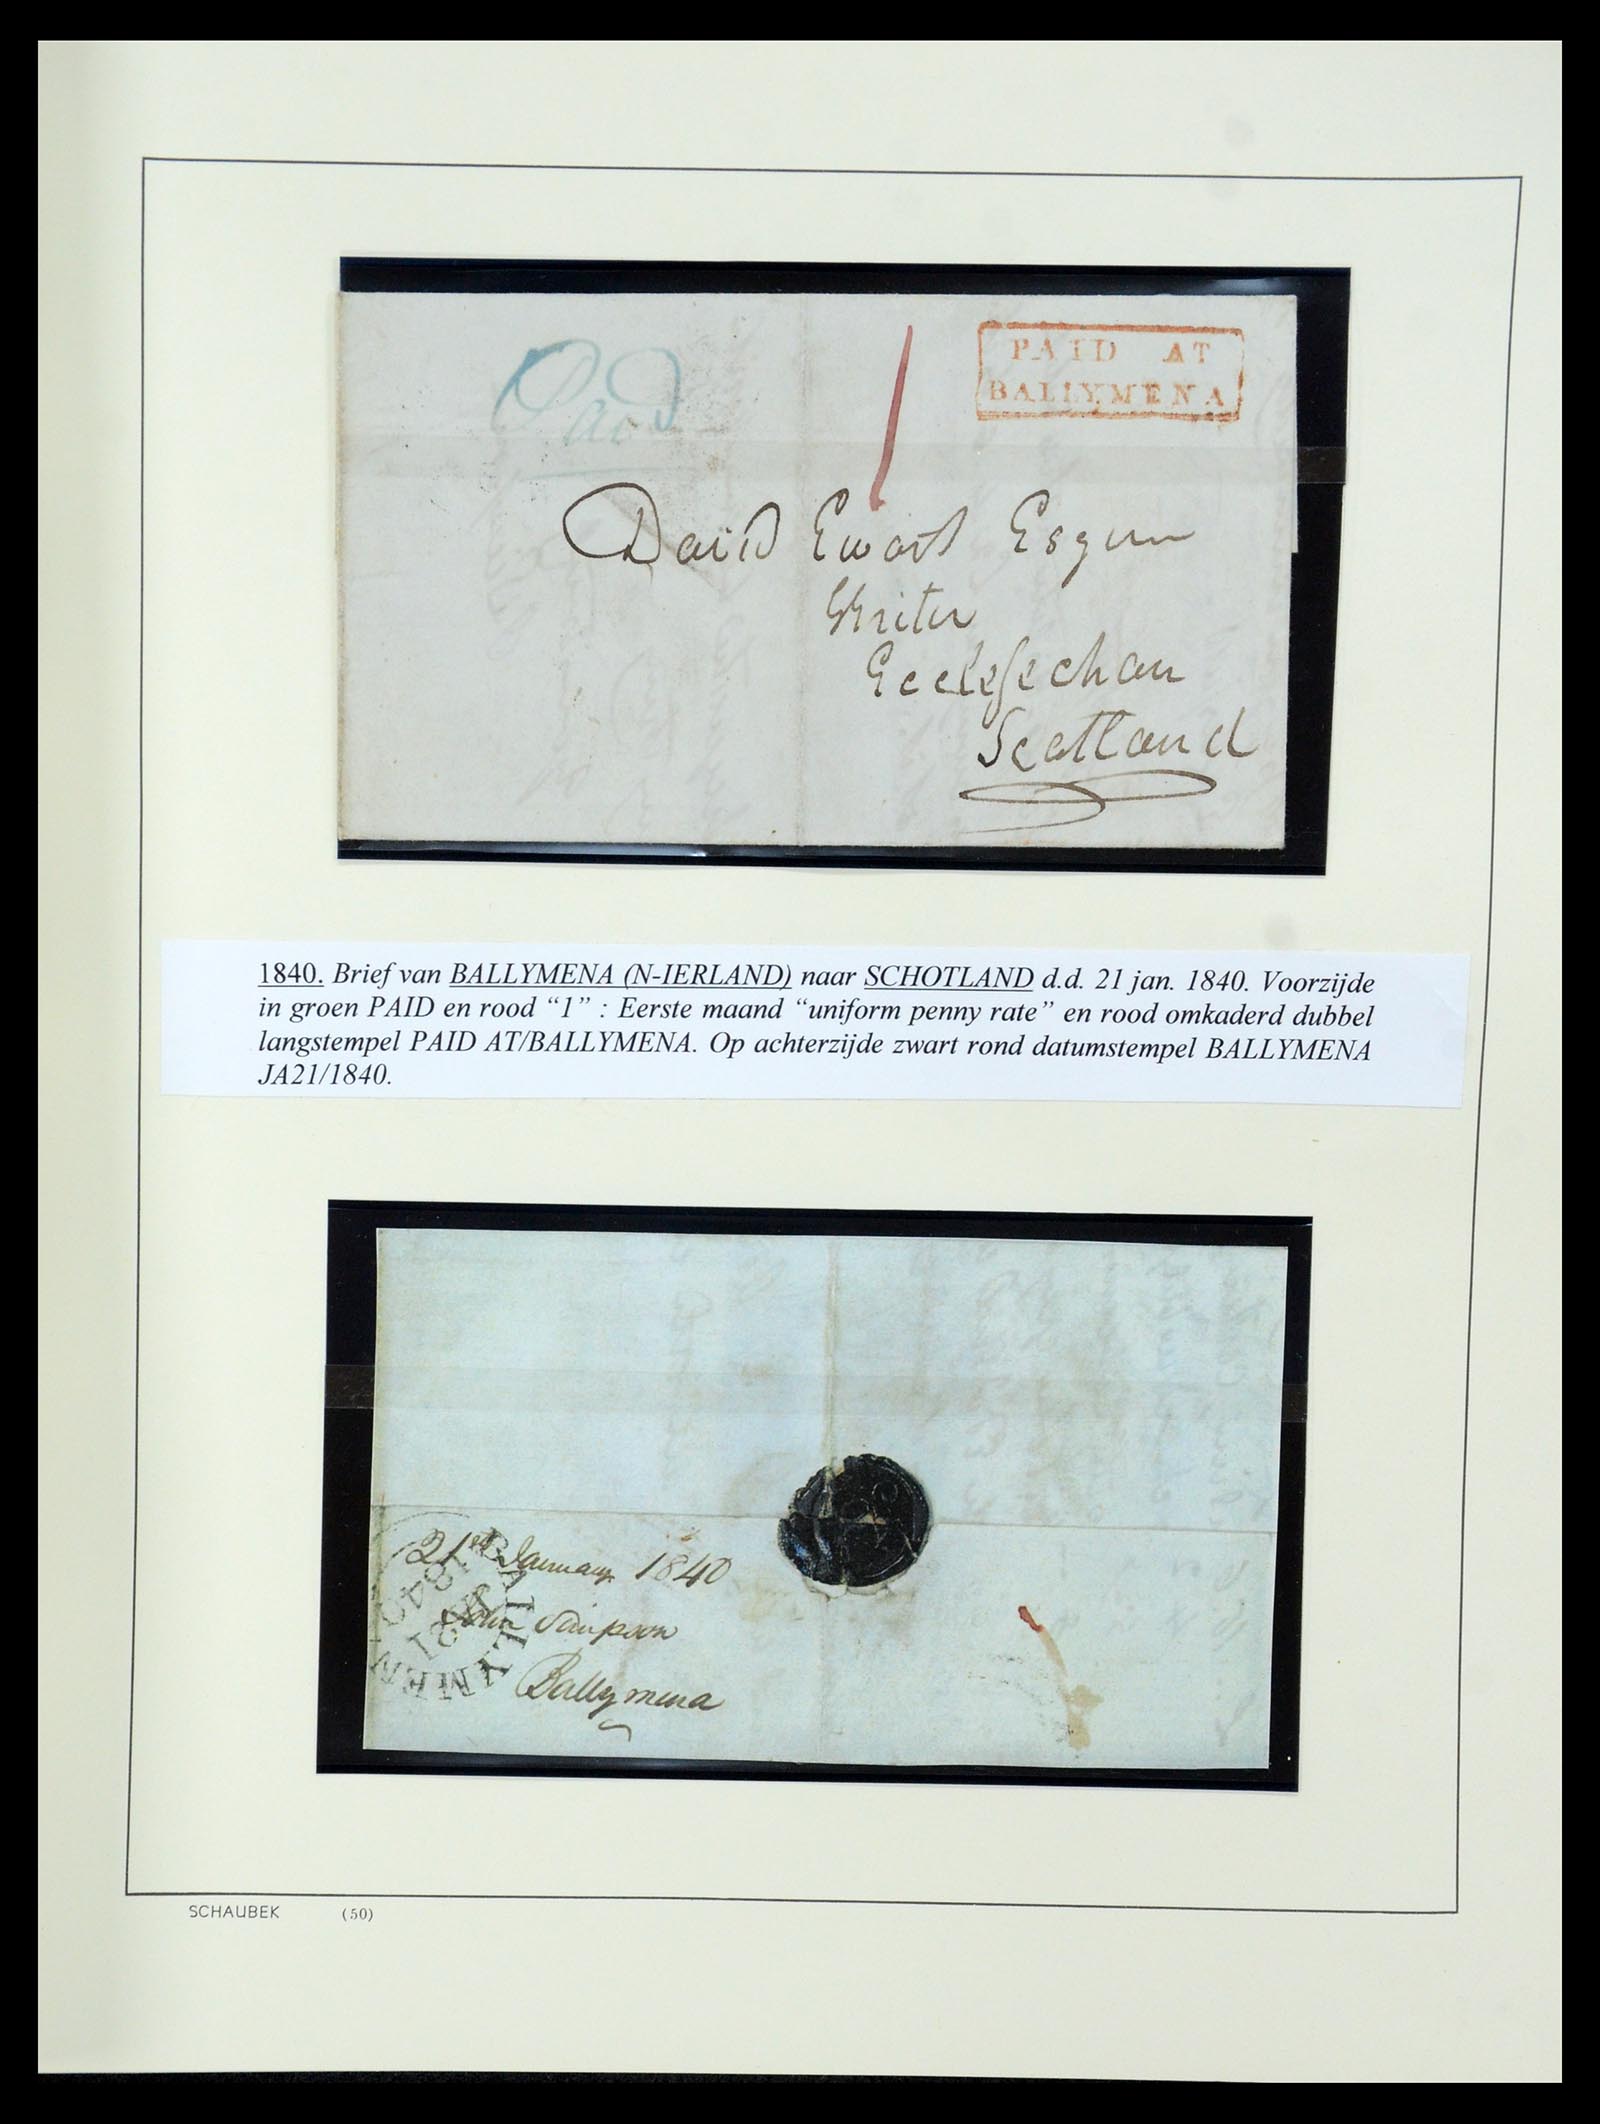 Paid
1
PAID AT
BALLYMENA
David Ewart Esquire
Writer
Ecclefechan
Scotland
1840. Brief van BALLYMENA (N-IERLAND) naar SCHOTLAND d.d. 21 jan. 1840. Voorzijde
in groen PAID en rood “1” : Eerste maand “uniform penny rate” en rood omkaderd dubbel
langstempel PAID AT/BALLYMENA. Op achterzijde zwart rond datumstempel BALLYMENA
JA21/1840.
21st January 1840
John Simpson
Ballymena
BALLYMENA
1840
SCHAUBEK (50)